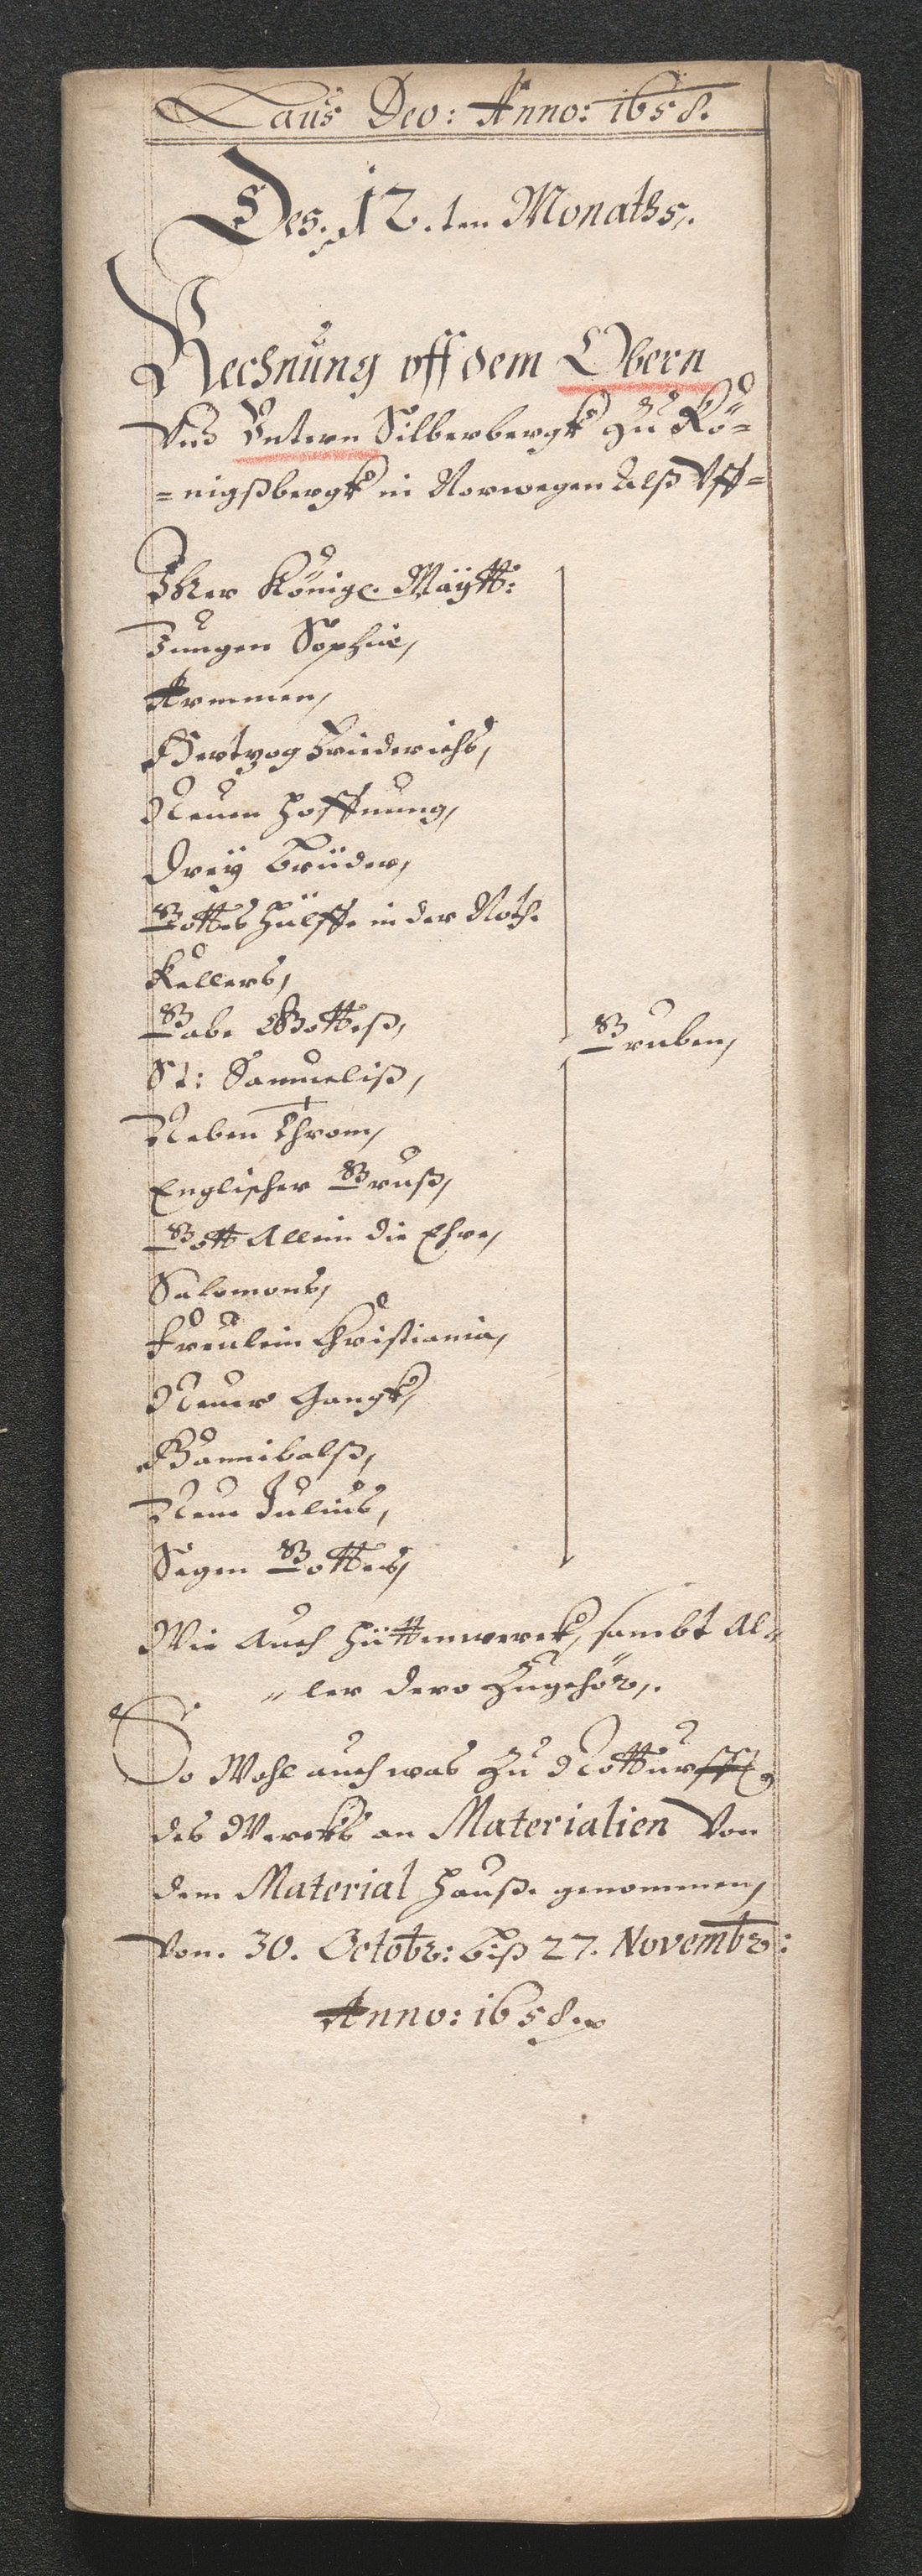 Laus Deo: Anno: 1658.
Des. 12.ten Monaths.
Rechnung vff dem Obern
Vnd Vntern Silberbergk zu Kö=
=nigßbergk in Norwegen Alß Vff=
Ihrer Königl. Maÿtt:
Jungen Sophie,
Armmen,
Hertzog Friederichs,
Neuen Hoffnung,
Dreÿ Brüder,
Gottes Hülffe in der Noth.
Kellers,
Gabe Gotteß,
St: Samueliß,
Neben Throm,
Englischer Gruß,
Gott Allein die Ehre,
Salomons,
Freulein Christiania,
Neuer Gangk,
Hannibalß,
Neue Julius,
Segen Gottes,
Gruben,
Wie Auch Hüttenwerck, sambt Al=
"ler dero Zugehör,.
So Wohl auch was Zu Notturfft
des Wercks an Materialien Von
dem Material Hauße genommen,
Von. 30. Octobr: biß 27. Novembr:
Anno: 1658.